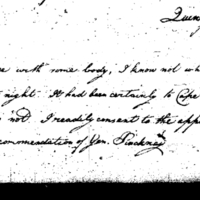 Quin
e with some body, I know not wh
night. It had been certainly to Cape
not. I readily consent to the app
commendation of Gen. Pinckney